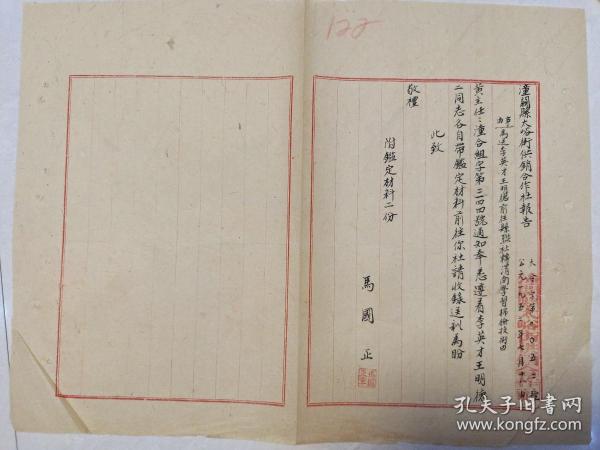 122
潼關縣大峪街供銷合作社報告
大合字第九〇五三號
公元一九五二年七月十八日
事由
為送李英才王明德前往縣聯社轉渭南學習掃檢技術由
黃主任：潼合組字第三四四號通知奉悉遵着李英才王明德
二同志各自帶鑑定材料前往你社請收錄送到為盼
此致
敬禮
附鑑定材料二份
馬國正
孔夫子旧书网
www.kongfz.com